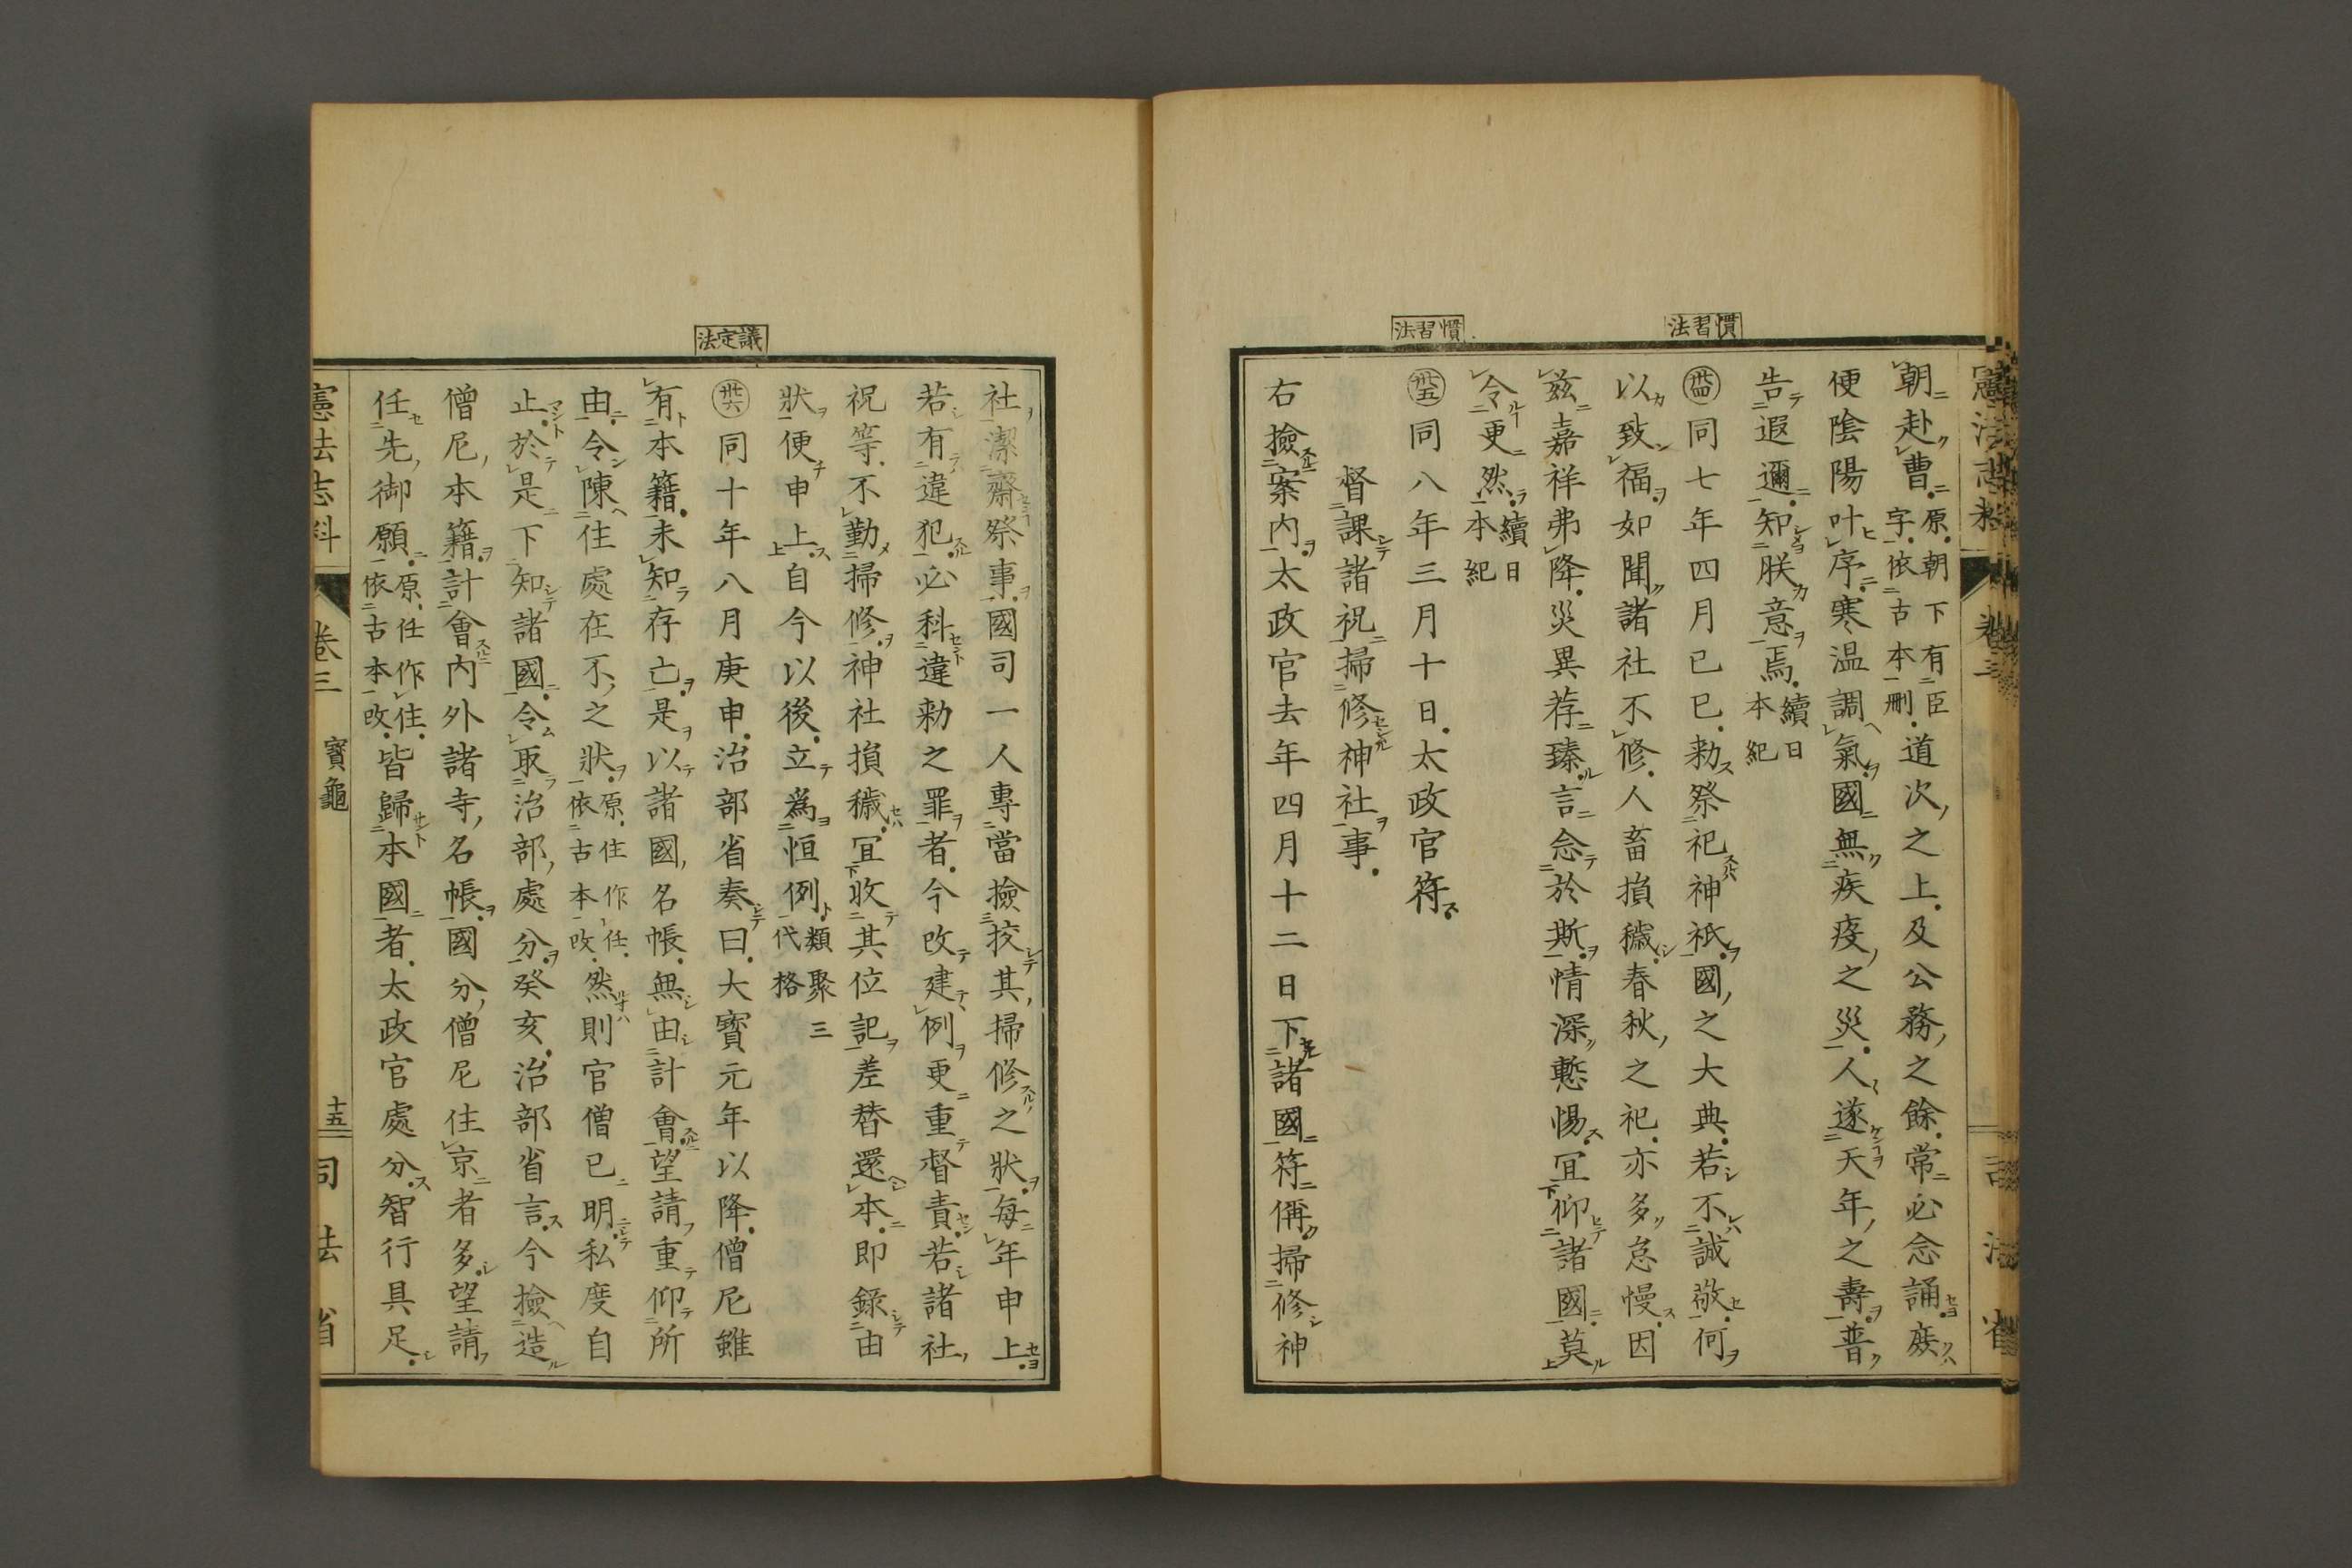 憲法志料 卷三 司法省
慣習法
慣習法
朝赴曹原朝下有臣字依古本刪道次之上及公務之餘常必念誦庶
使陰陽叶序寒温調氣國無疾疫之災人遂天年之壽普
告遐邇知朕意焉續日本紀
卌四同七年四月己巳勅祭祀神祇國之大典若不誠敬何
以致福如聞諸社不修人畜損穢春秋之祀亦多怠慢因
茲嘉祥弗降災異荐臻言念於斯情深慙惕宜仰諸國莫
令更然續日本紀
卌五同八年三月十日太政官符
督課諸祝掃修神社事
右撿案内太政官去年四月十二日下諸國符偁掃修神
議定法
社潔齋祭事國司一人專當撿挍其掃修之狀每年申上
若有違犯必科違勅之罪者今改建例更重督責若諸社
祝等不勤掃修神社損穢宜收其位記差替還本即錄由
狀便申上自今以後立爲恒例類聚三代格
卌六同十年八月庚申治部省奏曰大寶元年以降僧尼雖
有本籍未知存亡是以諸國名帳無由計會望請重仰所
由令陳住處在不之狀原住作任依古本改然則官僧已明私度自
止於是下知諸國令取治部處分癸亥治部省言今撿造
僧尼本籍計會内外諸寺名帳國分僧尼住京者多望請
任先御願原任作住依古本改皆歸本國者太政官處分智行具足
憲法志料 卷三 寶龜 十五 司法省